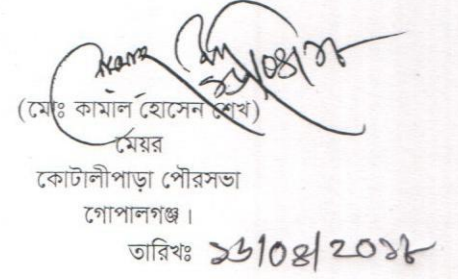 ১৬/০৪/১৮
(মোঃ কামাল হোসেন শেখ)
মেয়র
কোটালীপাড়া পৌরসভা
গোপালগঞ্জ।
তারিখঃ ১৬/০৪/২০১৮